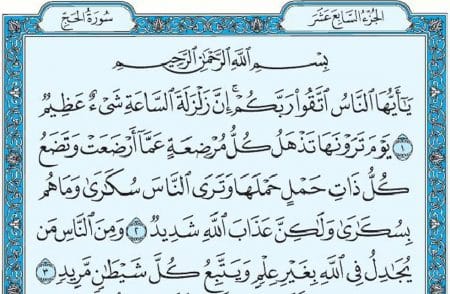 سُورَةُ الحَجِّ الجُزْءُ السَّابِعَ عَشَرَ
بِسْمِ اللَّهِ الرَّحْمَٰنِ الرَّحِيمِ
يَٰٓأَيُّهَا النَّاسُ اتَّقُوا۟ رَبَّكُمْ ۚ إِنَّ زَلْزَلَةَ السَّاعَةِ شَىْءٌ عَظِيمٌ
١ يَوْمَ تَرَوْنَهَا تَذْهَلُ كُلُّ مُرْضِعَةٍ عَمَّآ أَرْضَعَتْ وَتَضَعُ
كُلُّ ذَاتِ حَمْلٍ حَمْلَهَا وَتَرَى النَّاسَ سُكَٰرَىٰ وَمَا هُم
بِسُكَٰرَىٰ وَلَٰكِنَّ عَذَابَ اللَّهِ شَدِيدٌ ٢ وَمِنَ النَّاسِ مَن
يُجَٰدِلُ فِى اللَّهِ بِغَيْرِ عِلْمٍ وَيَتَّبِعُ كُلَّ شَيْطَٰنٍ مَّرِيدٍ ٣